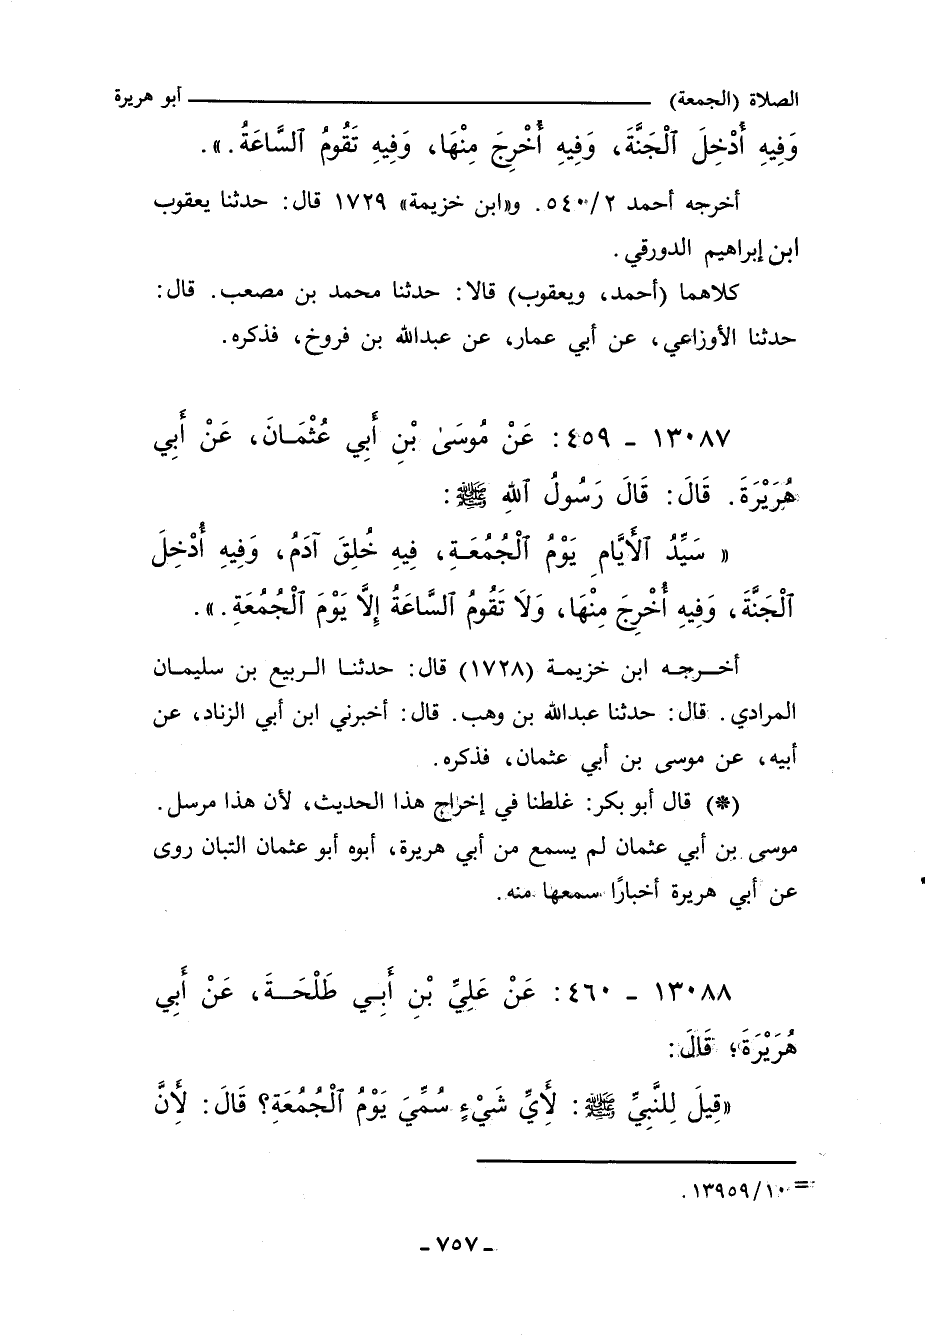 الصلاة (الجمعة) ــــــــــــــــ أبو هريرة
وَفِيهِ أُدْخِلَ ٱلْجَنَّةَ، وَفِيهِ أُخْرِجَ مِنْهَا، وَفِيهِ تَقُومُ ٱلسَّاعَةُ.».
أخرجه أحمد ٢/ ٥٤٠. و«ابن خزيمة» ١٧٢٩ قال: حدثنا يعقوب
ابن إبراهيم الدورقي.
كلاهما (أحمد، ويعقوب) قالا: حدثنا محمد بن مصعب. قال:
حدثنا الأوزاعي، عن أبي عمار، عن عبدالله بن فروخ، فذكره.
١٣٠٨٧ - ٤٥٩: عَنْ مُوسَىٰ بْنِ أَبِي عُثْمَـانَ، عَنْ أَبِي
هُرَيْرَةَ. قَالَ: قَالَ رَسُولُ ٱللهِ ﷺ:
« سَيِّدُ ٱلْأَيَّامِ يَوْمُ ٱلْجُمُعَـةِ، فِيهِ خُلِقَ آدَمُ، وَفِيهِ أُدْخِلَ
ٱلْجَنَّةَ، وَفِيهِ أُخْرِجَ مِنْهَا، وَلَا تَقُومُ ٱلسَّاعَةُ إِلَّا يَوْمَ ٱلْجُمُعَةِ.».
أخـرجـه ابن خزيمـة (١٧٢٨) قال: حدثنـا الـربيع بن سليمـان
المرادي. قال: حدثنا عبدالله بن وهب. قال: أخبرني ابن أبي الزناد، عن
أبيه، عن موسى بن أبي عثمان، فذكره.
(*) قال أبو بكر: غلطنا في إخراج هذا الحديث، لأن هذا مرسل.
موسى بن أبي عثمان لم يسمع من أبي هريرة، أبوه أبو عثمان التبان روى
عن أبي هريرة أخبارًا سمعها منه.
١٣٠٨٨ - ٤٦٠: عَنْ عَلِيِّ بْنِ أَبِـي طَلْحَـةَ، عَنْ أَبِي
هُرَيْرَةَ؛ قَالَ:
«قِيلَ لِلنَّبِيِّ ﷺ: لِأَيِّ شَيْءٍ سُمِّيَ يَوْمُ ٱلْجُمُعَةِ؟ قَالَ: لِأَنَّ
= ١٣٩٥٩/١٠.
- ٧٥٧ -